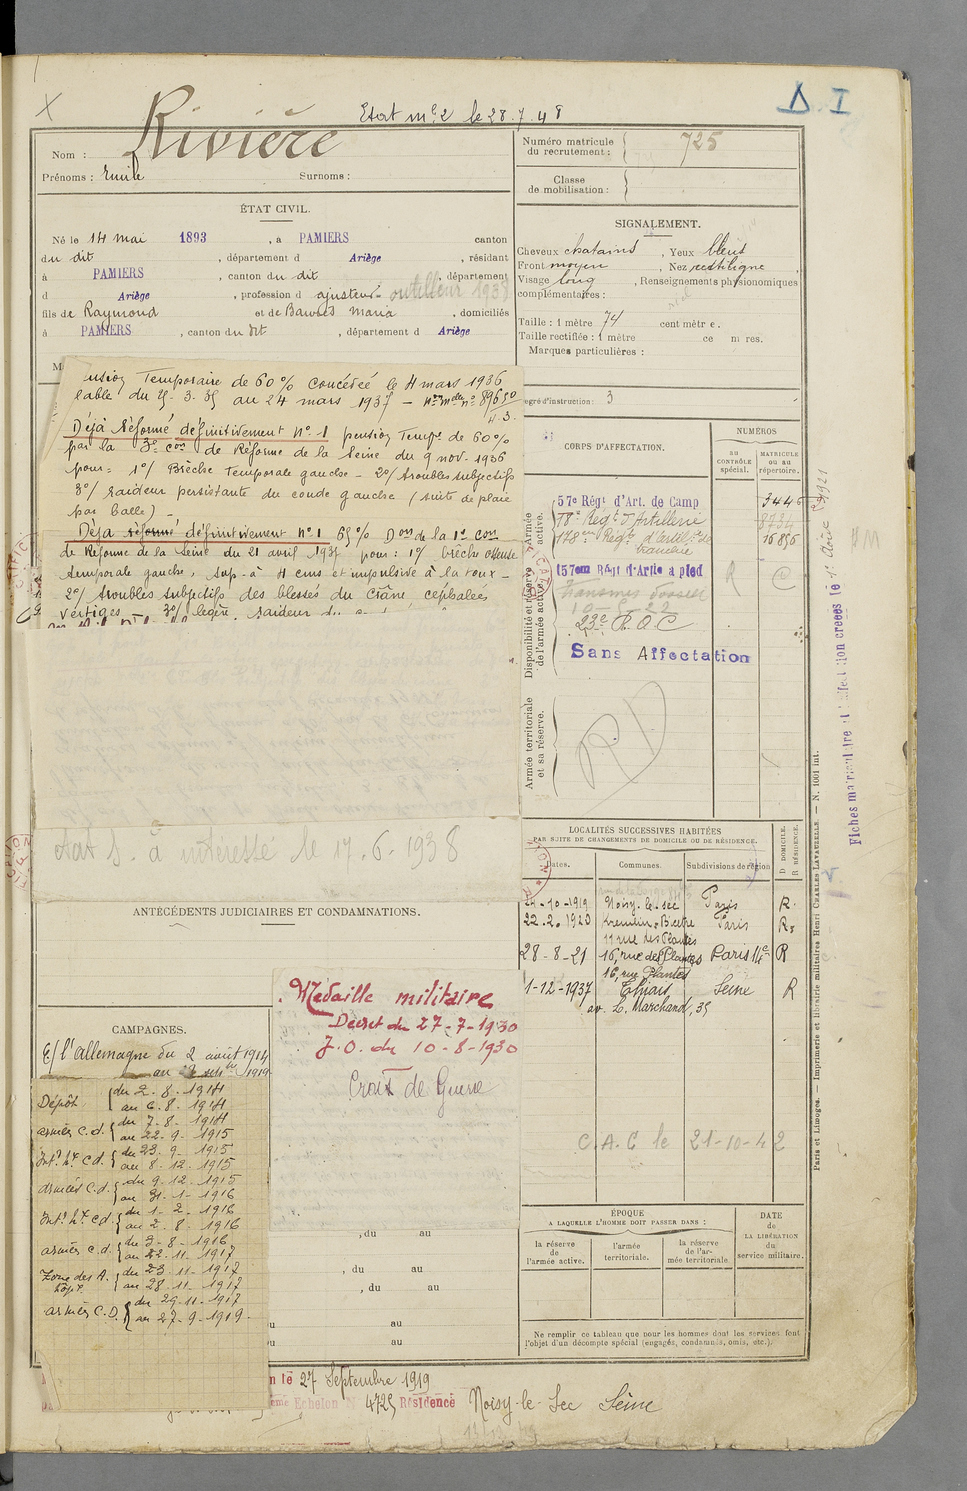 Etat mle 2 le 28.7.48
Δ I
Nom : Rivière
Prénoms : Emile Surnoms :
Numéro matricule du recrutement : 725
Classe de mobilisation :
ÉTAT CIVIL.
Né le 14 mai 1893, à PAMIERS canton
du dit, département d Ariège, résidant
à PAMIERS, canton du dit, département
d Ariège, profession d ajusteur outilleur 1938
fils de Raymond et de Maria, domiciliés
à PAMIERS, canton du dit, département d Ariège
SIGNALEMENT.
Cheveux chatains, Yeux bleus
Front moyen, Nez rectiligne,
Visage long, Renseignements physionomiques
complémentaires :
Taille : 1 mètre 74 centimètre.
Taille rectifiée : 1 mètre ce m res.
Marques particulières :
egré d'instruction : 3
ension Temporaire de 60% concédée le 4 mars 1936
lable du 25.3.35 au 24 mars 1937 –
Déjà Réformé définitivement n° 1 pension Temp. de 60%
par la 3e con de Réforme de la Seine du 9 nov. 1936
pour : 1°/ Brèche Temporale gauche – 2°/ troubles subjectifs
3°/ raideur persistante du coude gauche (suite de plaie
par balle) –
Déjà réformé définitivement n° 1 65% Don de la 1e con
de Réforme de la Seine du 21 avril 1937 pour : 1°/ brèche osseuse
temporale gauche, sup. à 4 cms et impulsive à la toux –
2°/ troubles subjectifs des blessés du Crâne, cephalées
vertiges – 3°/ légère raideur
Etat S. à intéressé le 17.6.1938
CORPS D'AFFECTATION.
NUMÉROS
au CONTRÔLE spécial.
MATRICULE ou au répertoire.
Armée active.
57e Régt d'Art. de Camp 3446
78e Régt d'Artillerie 8434
178e Régt d'Artillie de 16856
tranchée
Disponibilité et réserve de l'armée active.
157em Régt d'Artie a pied R C
Transmis dossier
10-5-22
23e R.A.C
Sans Affectation
Armée territoriale et sa réserve.
RD
Fiches matriculaire et d'affectation créées le
LOCALITÉS SUCCESSIVES HABITÉES
PAR SUITE DE CHANGEMENTS DE DOMICILE OU DE RÉSIDENCE.
Dates. Communes. Subdivisions de région D DOMICILE. R RÉSIDENCE.
24-10-1919 Noisy-le-sec Paris R.
22.2.1920 Kremlin-Bicetre Paris R.
11 rue des Plantes
28-8-21 16, rue des Plantes Paris 14e R
16, rue Plantes
1-12-1937 Thiais Seine R
av. L. Marchand, 35
C.A.C le 21-10-42
ANTÉCÉDENTS JUDICIAIRES ET CONDAMNATIONS.
CAMPAGNES.
C/ l'Allemagne du 2 août 1914
au 27 septbre 1919
Dépôt { du 2.8.1914
au 6.8.1914
armées C.d. { du 7-8-1914
au 22.9-1915
Int. hx Cd. { du 23.9-1915
au 8.12.1915
armées C.d. { du 9-12-1915
au 31-1-1916
Int. hx Cd. { du 1-2-1916
au 2-8-1916
armées C.d. { du 3-8-1916
au 22-11-1917
Zone des A. hôpx { du 23-11-1917
au 28-11-1917
armées C.D. { du 29-11-1917
au 27-9-1919.
Médaille militaire
Décret du 27-7-1930
J.O. du 10-8-1930
Croix de Guerre
, du au
, du au
, du au
u au
u au
ÉPOQUE
A LAQUELLE L'HOMME DOIT PASSER DANS :
la réserve de l'armée active.
l'armée territoriale.
la réserve de l'armée territoriale
DATE de LA LIBÉRATION du service militaire.
Ne remplir ce tableau que pour les hommes dont les services font
l'objet d'un décompte spécial (engagés, condamnés, omis, etc.).
n le 27 Septembre 1919
ème Echelon 4725 Résidence Noisy-le-Sec Seine
Paris et Limoges. — Imprimerie et librairie militaires Henri CHARLES-LAVAUZELLE. — N. 1001 int.